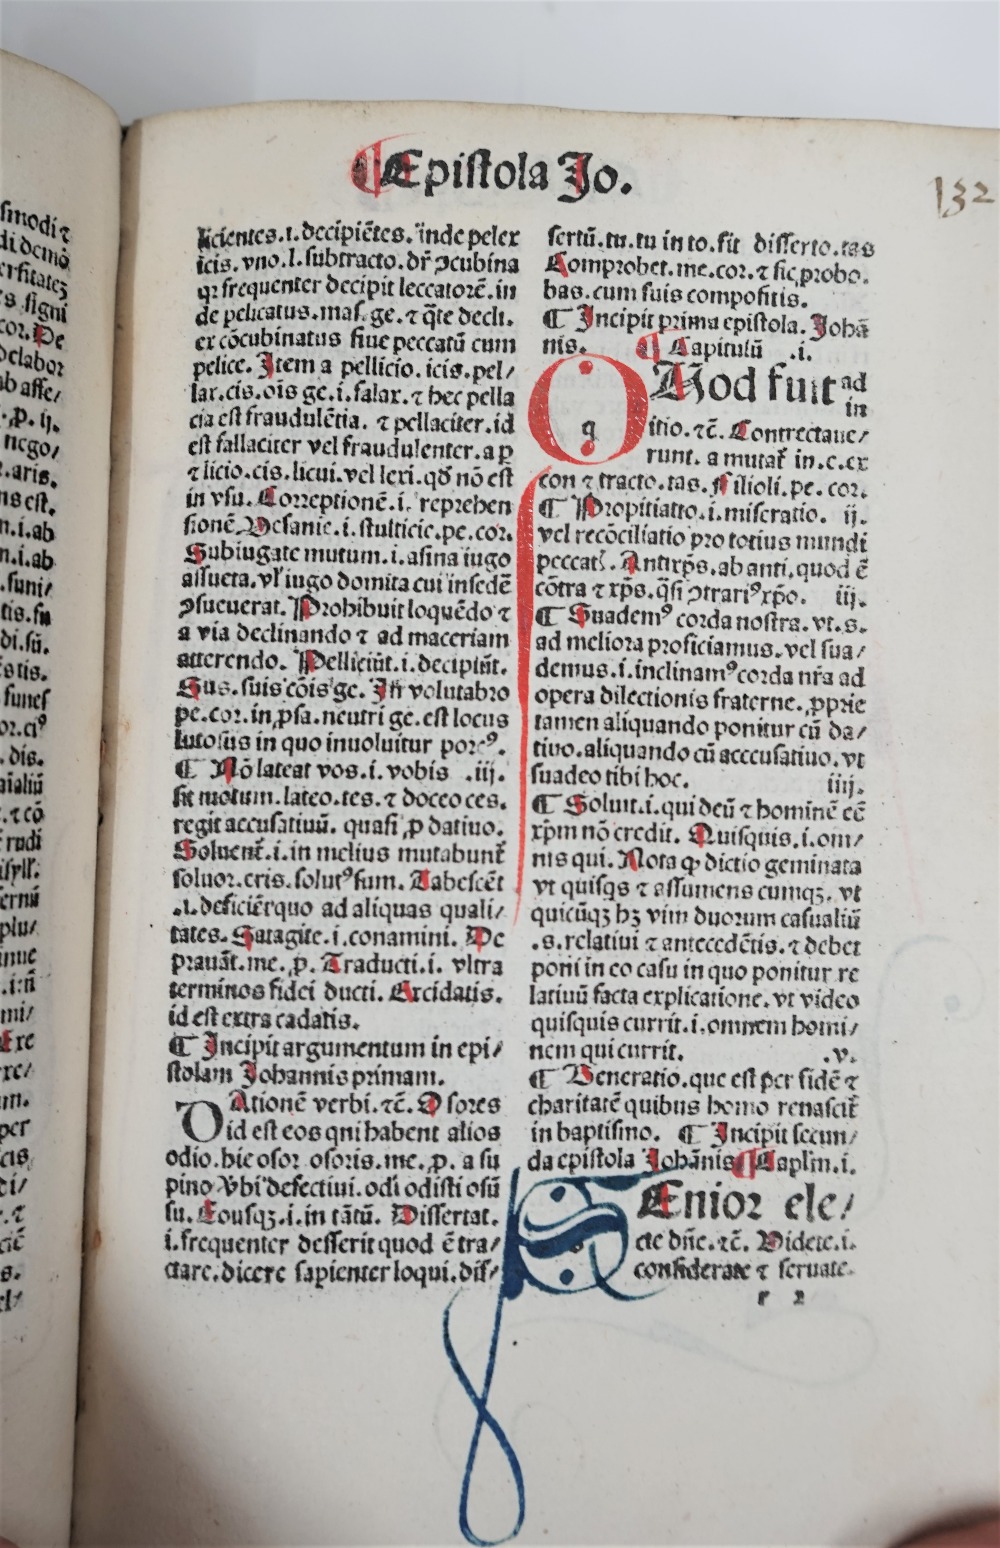 ¶ Epistola Jo.
132
licientes.i.decipiẽtes. inde pelex
icis. vno.l. subtracto. dr̄ ↄcubina
qr frequenter decipit leccatorẽ. in
de pelicatus. mas. ge. ⁊ q̃te decli.
ex cõcubinatus siue peccatũ cum
pelice. Item a pellicio. icis. pel/
lax. cis. oĩs ge. i. falax. ⁊ hec pella
cia est fraudulẽtia. ⁊ pellaciter. id
est fallaciter vel fraudulenter. a ꝑ
⁊ licio. cis. licui. vel lexi. qđ nõ est
in vsu. Correptionẽ. i. reprehen
sionẽ. Vesanie. i. stulticie. pe. cor.
Subiugate mutum. i. asina iugo
assueta. vl' iugo domita cui insedẽ
ↄsueuerat. Prohibuit loquẽdo ⁊
a via declinando ⁊ ad maceriam
atterendo. Pelliciũt. i. decipiũt.
Sus. suis cõis ge. In volutabro
pe. cor. in ꝓsa. neutri ge. est locus
lutosus in quo inuoluitur porcꝰ.
¶ Nõ lateat vos. i. vobis .iij.
sit motum. lateo. tes. ⁊ doceo ces.
regit accusatiuũ. quasi ꝓ datiuo.
Soluent̃. i. in melius mutabunt̃
soluor. eris. solutꝰ sum. Tabescẽt
.i. deficiẽt quo ad aliquas quali/
tates. Satagite. i. conamini. De
prauãt. me. ꝓ. Traducti. i. vltra
terminos fidei ducti. Excidatis.
id est extra cadatis.
¶ Incipit argumentum in epi/
stolam Johannis primam.
RAtionẽ verbi. ⁊c̃. Osores
id est eos qui habent alios
odio. hic osor osoris. me. ꝓ. a su
pino vbi defectiui. odi odisti osũ
su. Eousqꝫ. i. in tãtũ. Dissertat.
i. frequenter desserit quod ẽ tra/
ctare. dicere sapienter loqui. dis/
sertũ. tu. tu in to. fit disserto. tas
Comprobet. me. cor. ⁊ sic probo.
bas. cum suis compositis.
¶ Incipit prima epistola. Johã
nis. ¶ Capitulũ .i.
q QUod fuit ad
in
itio. ⁊c̃. Contrectaue/
runt. a mutat̃ in. e. ex
con ⁊ tracto. tas. Filioli. pe. cor.
¶ Propitiatio. i. miseratio. ij.
vel recõciliatio pro totius mundi
peccat̃. Antixp̃s. ab anti. quod ẽ
cõtra ⁊ xp̃s. q̃si ↄtrariꝰ xp̃o. iij.
¶ Suademꝰ corda nostra. vt. s.
ad meliora proficiamus. vel sua/
demus. i. inclinamꝰ corda nr̃a ad
opera dilectionis fraterne. ꝓprie
tamen aliquando ponitur cũ da/
tiuo. aliquando cũ acccusatiuo. vt
suadeo tibi hoc. iiij.
¶ Soluit. i. qui deũ ⁊ hominẽ eẽ
xp̃m nõ credit. Quisquis. i. om/
nis qui. Nota ꝙ dictio geminata
vt quisqs ⁊ assumens cumqꝫ. vt
quicũqꝫ hꝫ vim duorum casualiũ
.s. relatiui ⁊ antecedẽtis. ⁊ debet
poni in eo casu in quo ponitur re
latiuũ facta explicatione. vt video
quisquis currit. i. omnem homi/
nem qui currit. .v.
¶ Veneratio. que est per fidẽ ⁊
charitatẽ quibus homo renascit̃
in baptismo. ¶ Incipit secun/
da epistola Johãnis ¶ Caplm. i.
SEnior ele/
cte dñe. ⁊c̃. Videte. i.
considerate ⁊ seruate.
r 2